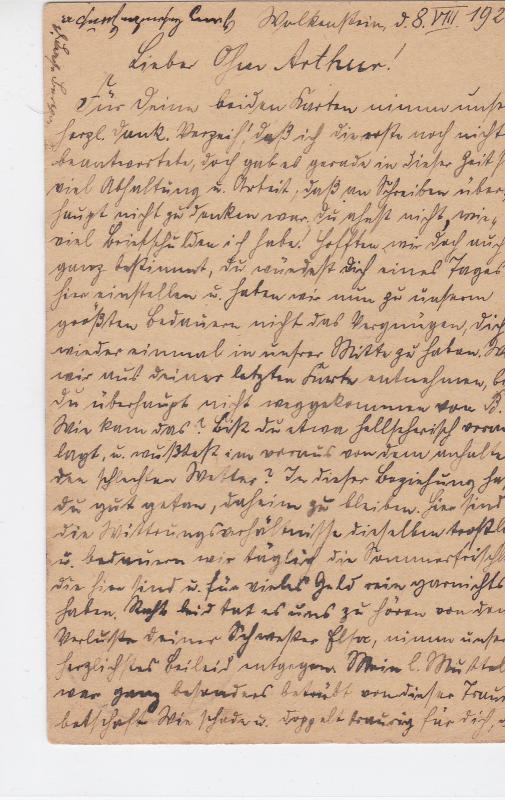 Wolkenstein, d. 8. VIII. 192
Lieber Ohm Arthur!
Für Deine beiden Karten nimm unse
herzl. Dank. Verzeih', daß ich die erste noch nicht
beantwortete, doch gab es gerade in dieser Zeit s
viel Abhaltung u. Arbeit, daß an Schreiben über„
haupt nicht zu denken war, du ahnst nicht, wie„
viel Briefschulden ich habe. Hofften wir doch auch
ganz bestimmt, du würdest dich eines Tages
hier einstellen u. haben wir nun zu unserm
größten Bedauern nicht das Vergnügen, dich
wieder einmal in unsrer Mitte zu haben. W
wir aus deiner letzten Karte entnehmen, b
du überhaupt nicht weggekommen von B.
Wie kam das? Bist du etwa hellseherisch veran
lagt, u. wußtest im voraus von dem anhalte
den schlechten Wetter? In dieser Beziehung ha
du gut getan, daheim zu bleiben. Hier sind
die Witterungsverhältnisse dieselben trostl
u. bedauern wir täglich die Sommerfrischl
die hier sind u. für vieles Geld rein garnichts
haben. Recht leid tat es uns zu hören von dem
Verluste deiner Schwester Elsa, nimm unser
herzlichstes Beileid entgegen. Mein l. Muttel
war ganz besonders betrübt von dieser Trau
botschaft. Wie schade u. doppelt traurig für dich,